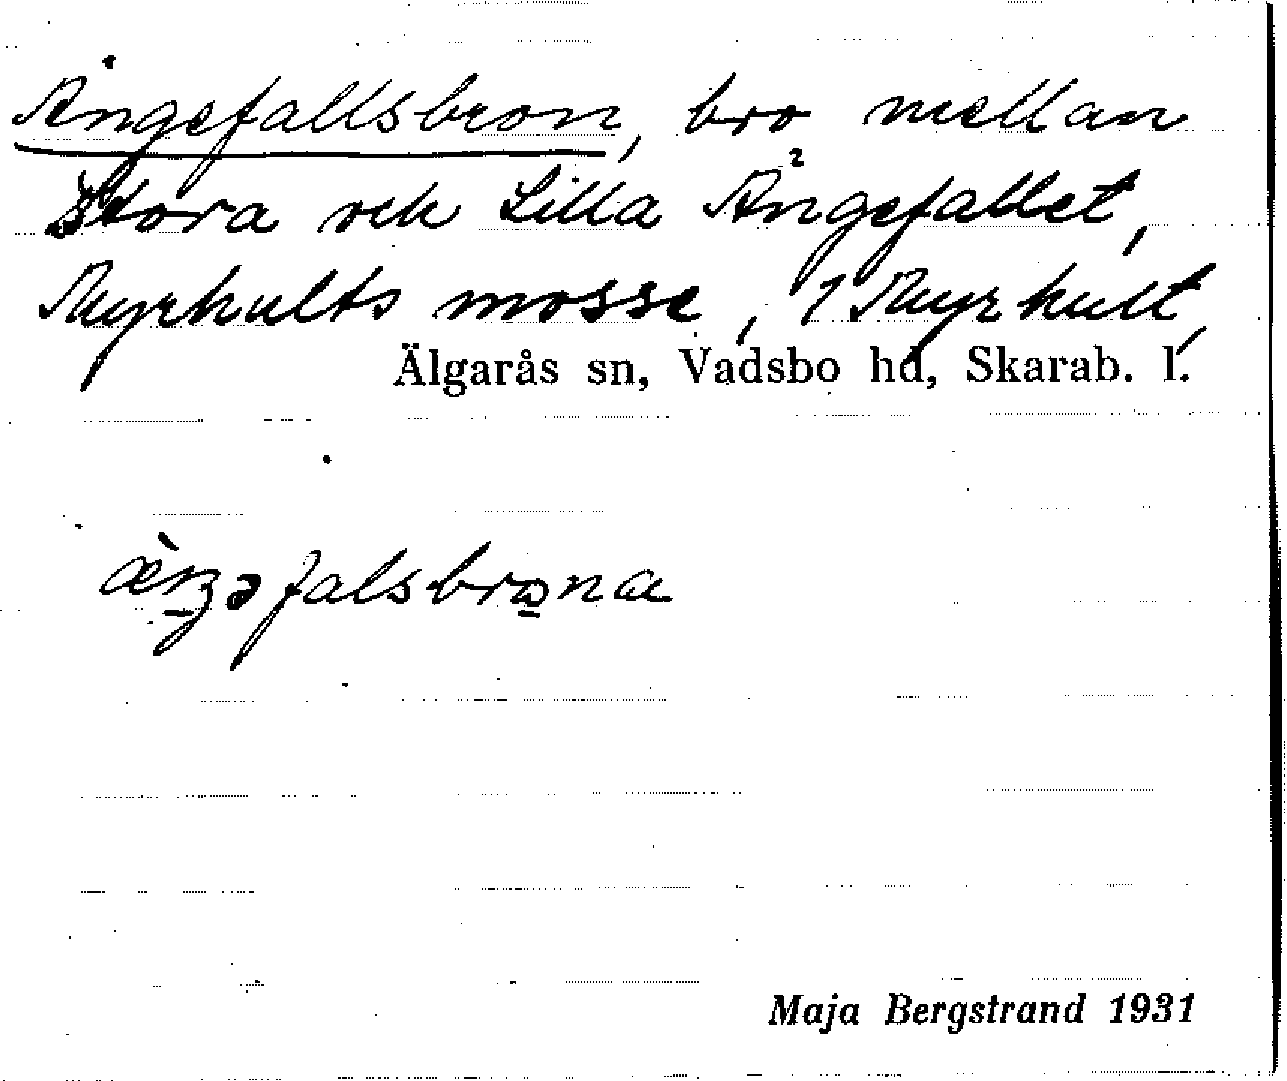 Ängefallsbron, bro mellan
Stora och Lilla Ängefallet,
Myrhults mosse, 1 Myrhult,
Älgarås sn, Vadsbo hd, Skarab. l.
Maja Bergstrand 1931